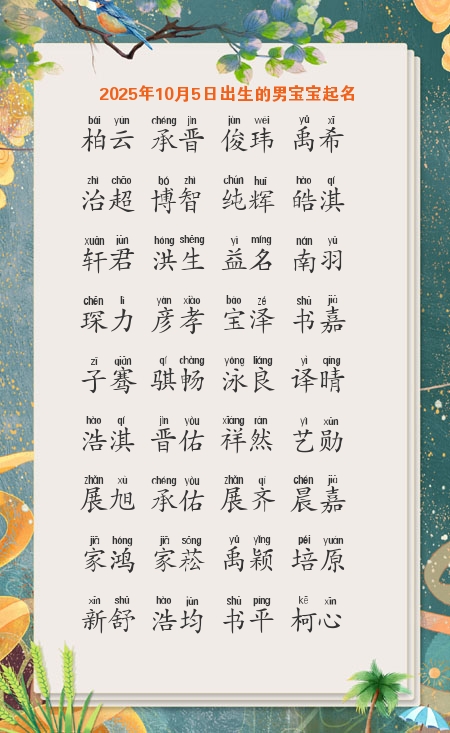 2025年10月5日出生的男宝宝起名
bǎi yún chéng jìn jùn wěi yǔ xī
柏云 承晋 俊玮 禹希
zhì chāo bó zhì chún huī hào qí
治超 博智 纯辉 皓淇
xuān jūn hóng shēng yì míng nán yǔ
轩君 洪生 益名 南羽
chēn lì yàn xiào bǎo zé shū jiā
琛力 彦孝 宝泽 书嘉
zǐ qiān qí chàng yǒng liáng yì qíng
子骞 骐畅 泳良 译晴
hào qí jìn yòu xiáng rán yì xūn
浩淇 晋佑 祥然 艺勋
zhǎn xù chéng yòu zhǎn qí chén jiā
展旭 承佑 展齐 晨嘉
jiā hóng jiā sōng yǔ yǐng péi yuán
家鸿 家菘 禹颖 培原
xīn shū hào jūn shū píng kē xīn
新舒 浩均 书平 柯心